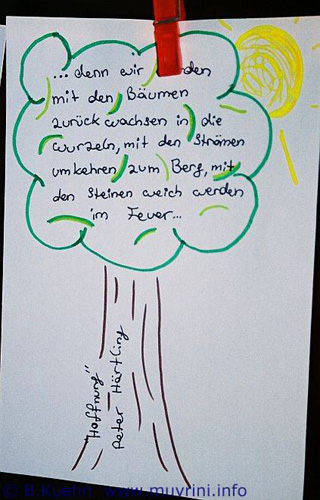 ... denn wir den
mit den Bäumen
zurück wachsen in die
Wurzeln, mit den Strömen
umkehren zum Berg, mit
den Steinen weich werden
im Feuer...
"Hoffnung"
Peter Härtling
www.muvrini.info